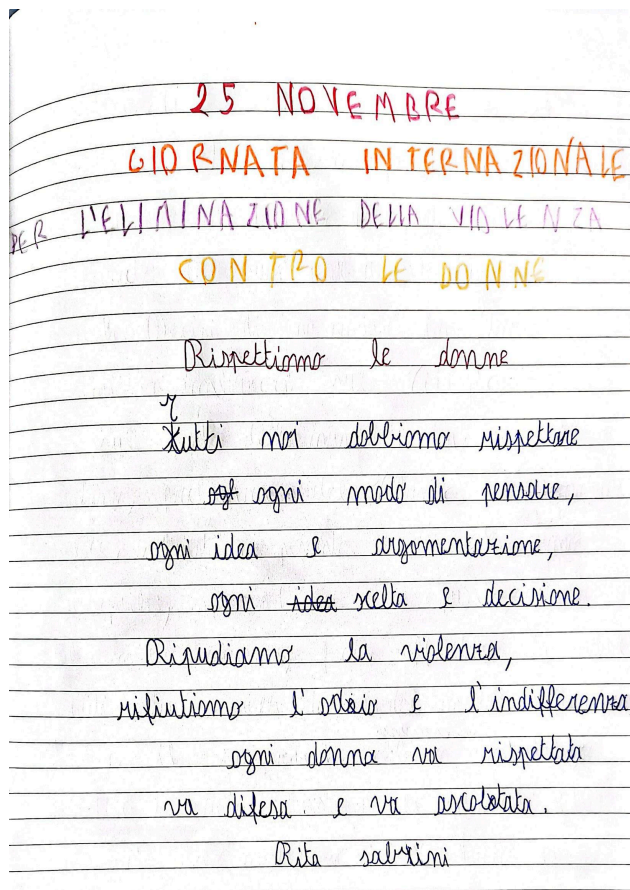 25 NOVEMBRE
GIORNATA INTERNAZIONALE
PER L'ELIMINAZIONE DELLA VIOLENZA
CONTRO LE DONNE
Rispettiamo le donne
Tutti noi dobbiamo rispettare
ogni modo di pensare,
ogni idea e argomentazione,
ogni idea scelta e decisione.
Ripudiamo la violenza,
rifiutiamo l'odio e l'indifferenza
ogni donna va rispettata
va difesa e va ascoltata.
Rita sabrini